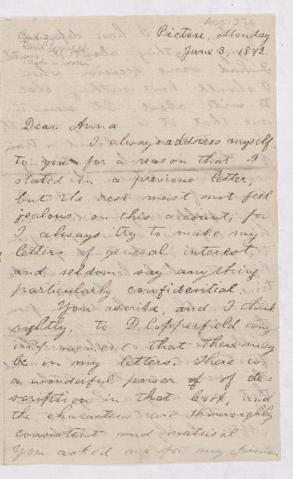 Pictou, Monday
June 3, 1872
Dear Anna
I always address myself
to you for a reason that I
stated in a previous letter,
but the rest must not feel
jealous on this account, for
I always try to make my
letters of general interest
and seldom say anything
particularly confidential
You ascribe, and I think
rightly, to D. Copperfield any
improvement that there may
be in my letters. There is
a wonderful power of of de-
scription in that book, and
the characters are thoroughly
consistent and natural
You asked me for my opinion